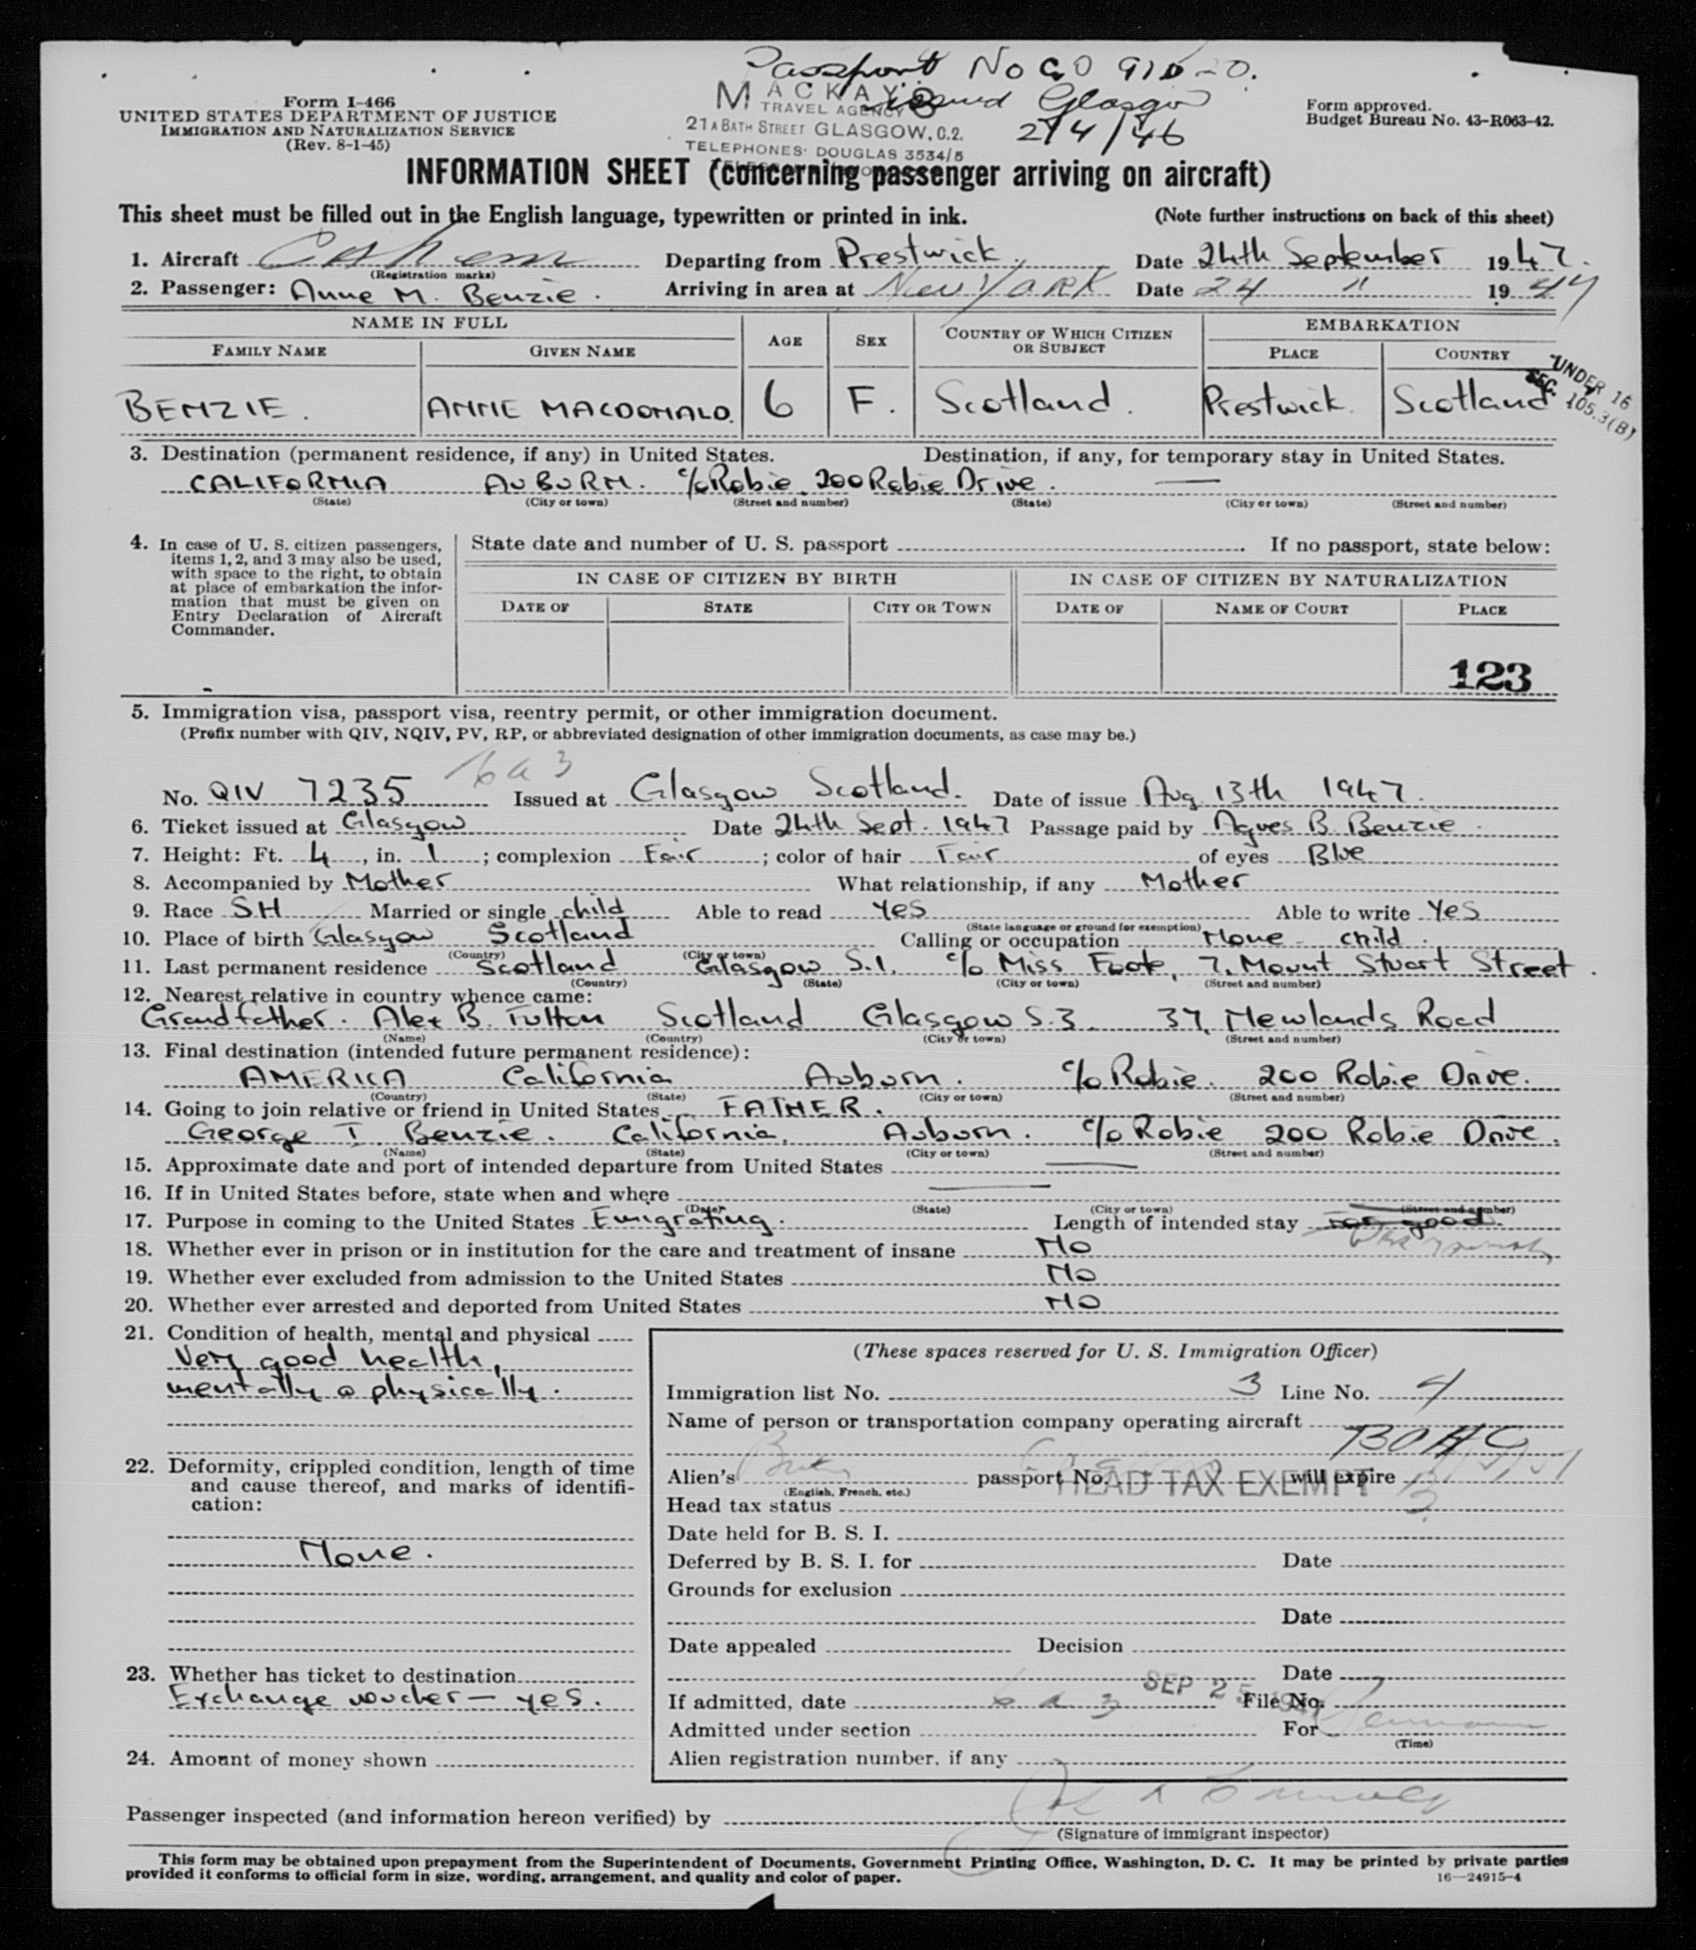 Passport No
MACKAY
TRAVEL AGENCY issued Glasgow
21A BATH STREET GLASGOW, C.2. 2/4/46
TELEPHONES: DOUGLAS 3534/5
Form I-466
UNITED STATES DEPARTMENT OF JUSTICE
IMMIGRATION AND NATURALIZATION SERVICE
(Rev. 8-1-45)
Form approved.
Budget Bureau No. 43-R063-42.
INFORMATION SHEET (concerning passenger arriving on aircraft)
This sheet must be filled out in the English language, typewritten or printed in ink. (Note further instructions on back of this sheet)
1. Aircraft Departing from Prestwick. Date 24th September 1947.
(Registration marks)
2. Passenger: Anne M. Benzie. Arriving in area at New York Date 24 " 1947
NAME IN FULL AGE SEX COUNTRY OF WHICH CITIZEN OR SUBJECT EMBARKATION
FAMILY NAME GIVEN NAME PLACE COUNTRY
BENZIE. ANNE MACDONALD. 6 F. Scotland. Prestwick. Scotland
UNDER 16
SEC. 105.3(B)
3. Destination (permanent residence, if any) in United States. Destination, if any, for temporary stay in United States.
CALIFORNIA AUBURN. c/o Robie 200 Robie Drive. —
(State) (City or town) (Street and number) (State) (City or town) (Street and number)
4. In case of U. S. citizen passengers, items 1, 2, and 3 may also be used, with space to the right, to obtain at place of embarkation the information that must be given on Entry Declaration of Aircraft Commander.
State date and number of U. S. passport . If no passport, state below:
IN CASE OF CITIZEN BY BIRTH IN CASE OF CITIZEN BY NATURALIZATION
DATE OF STATE CITY OR TOWN DATE OF NAME OF COURT PLACE
123
5. Immigration visa, passport visa, reentry permit, or other immigration document.
(Prefix number with QIV, NQIV, PV, RP, or abbreviated designation of other immigration documents, as case may be.)
6 a 3
No. QIV 7235 Issued at Glasgow Scotland. Date of issue Aug 13th 1947.
6. Ticket issued at Glasgow Date 24th Sept. 1947 Passage paid by Agnes B. Benzie.
7. Height: Ft. 4, in. 1; complexion Fair; color of hair Fair of eyes Blue
8. Accompanied by Mother What relationship, if any Mother
9. Race SH Married or single child Able to read Yes Able to write Yes
(State language or ground for exemption)
10. Place of birth Glasgow Scotland Calling or occupation None - child.
(Country) (City or town)
11. Last permanent residence Scotland Glasgow S.1. c/o Miss Foote, 7, Mount Stuart Street.
(Country) (State) (City or town) (Street and number)
12. Nearest relative in country whence came:
Grandfather. Alex B. Fulton Scotland Glasgow S.3. 37, Newlands Road
(Name) (Country) (City or town) (Street and number)
13. Final destination (intended future permanent residence):
AMERICA California Auburn. c/o Robie. 200 Robie Drive.
(Country) (State) (City or town) (Street and number)
14. Going to join relative or friend in United States FATHER.
George T. Benzie. California. Auburn. c/o Robie 200 Robie Drive.
(Name) (State) (City or town) (Street and number)
15. Approximate date and port of intended departure from United States —
16. If in United States before, state when and where —
(Date) (State) (City or town) (Street and number)
17. Purpose in coming to the United States Emigrating. Length of intended stay for good.
18. Whether ever in prison or in institution for the care and treatment of insane No
19. Whether ever excluded from admission to the United States No
20. Whether ever arrested and deported from United States No
21. Condition of health, mental and physical
Very good health,
mentally & physically.
22. Deformity, crippled condition, length of time and cause thereof, and marks of identification:
None.
23. Whether has ticket to destination
Exchange voucher — yes.
24. Amount of money shown
(These spaces reserved for U. S. Immigration Officer)
Immigration list No. 3 Line No. 4
Name of person or transportation company operating aircraft
BOAC
Alien's passport No. will expire
(English, French, etc.)
HEAD TAX EXEMPT
Head tax status
Date held for B. S. I.
Deferred by B. S. I. for Date
Grounds for exclusion
Date
Date appealed Decision
Date
SEP 25 1947
If admitted, date 6 a 3 File No.
Admitted under section For
(Time)
Alien registration number, if any
Passenger inspected (and information hereon verified) by
(Signature of immigrant inspector)
This form may be obtained upon prepayment from the Superintendent of Documents, Government Printing Office, Washington, D. C. It may be printed by private parties
provided it conforms to official form in size, wording, arrangement, and quality and color of paper. 16—24915-4